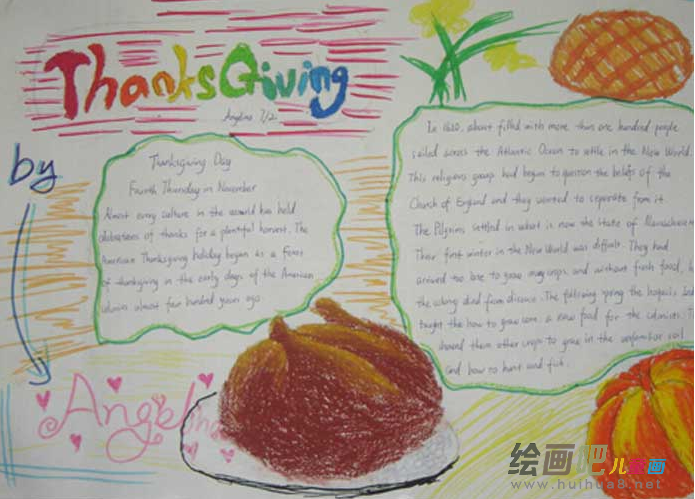 ThanksGiving
Angelina 7/2
by
Angelina
Thanksgiving Day
Fourth Thursday in November
Almost every culture in the world has held
celebrations of thanks for a plentiful harvest. The
American Thanksgiving holiday began as a feast
of thanksgiving in the early days of the American
colonies almost four hundred years ago
In 1620, about filled with more than one hundred people
sailed across the Atlantic Ocean to settle in the New World.
This religious group had begun to question the beliefs of the
Church of England and they wanted to separate from it.
The Pilgrims settled in what is now the state of Massachuse
Their first winter in the New World was difficult. They had
arrived too late to grow many crops, and without fresh food, h
the colony died from disease. The following spring the Iroquois Ind
taught the how to grow corn, a new food for the colonists. T
showed them other crops to grow in the unfamiliar soil
and how to hunt and fish.
绘画吧 儿童画
www.huihua8.net